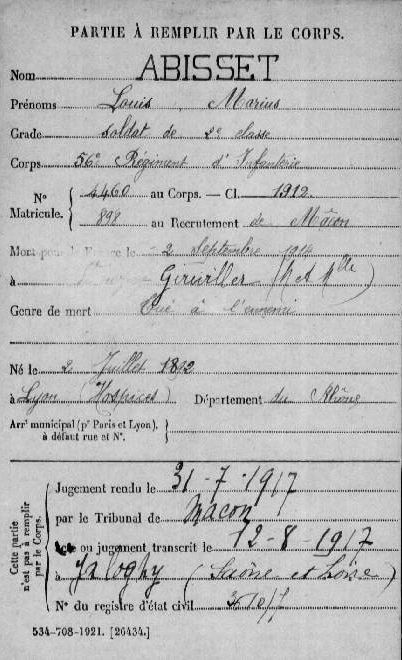 PARTIE À REMPLIR PAR LE CORPS.
Nom ABISSET
Prénoms Louis Marius
Grade soldat de 2e classe
Corps 56e Régiment d'Infanterie
N° Matricule. { 4460 au Corps. — Cl. 1912
898 au Recrutement de Mâcon
Mort pour la France le 2 Septembre 1914
à Gerviller (M et Mlle)
Genre de mort Tué à l'ennemi
Né le 2 Juillet 1892
à Lyon (Hospices) Département du Rhône
Arrt municipal (pr Paris et Lyon), }
à défaut rue et N°.
Cette partie n'est pas à remplir par le Corps.
Jugement rendu le 31-7-1917
par le Tribunal de Macon
acte ou jugement transcrit le 12-8-1917
à Jalogny (Saône et Loire)
N° du registre d'état civil
534-708-1921. [26434.]